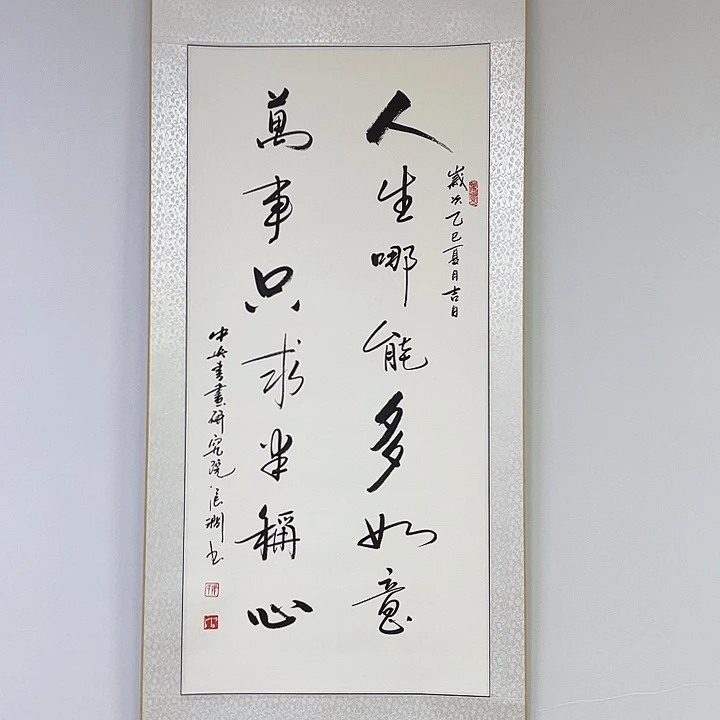 歲次乙巳夏月吉日
人生哪能多如意
萬事只求半稱心
中央書畫研究院 書